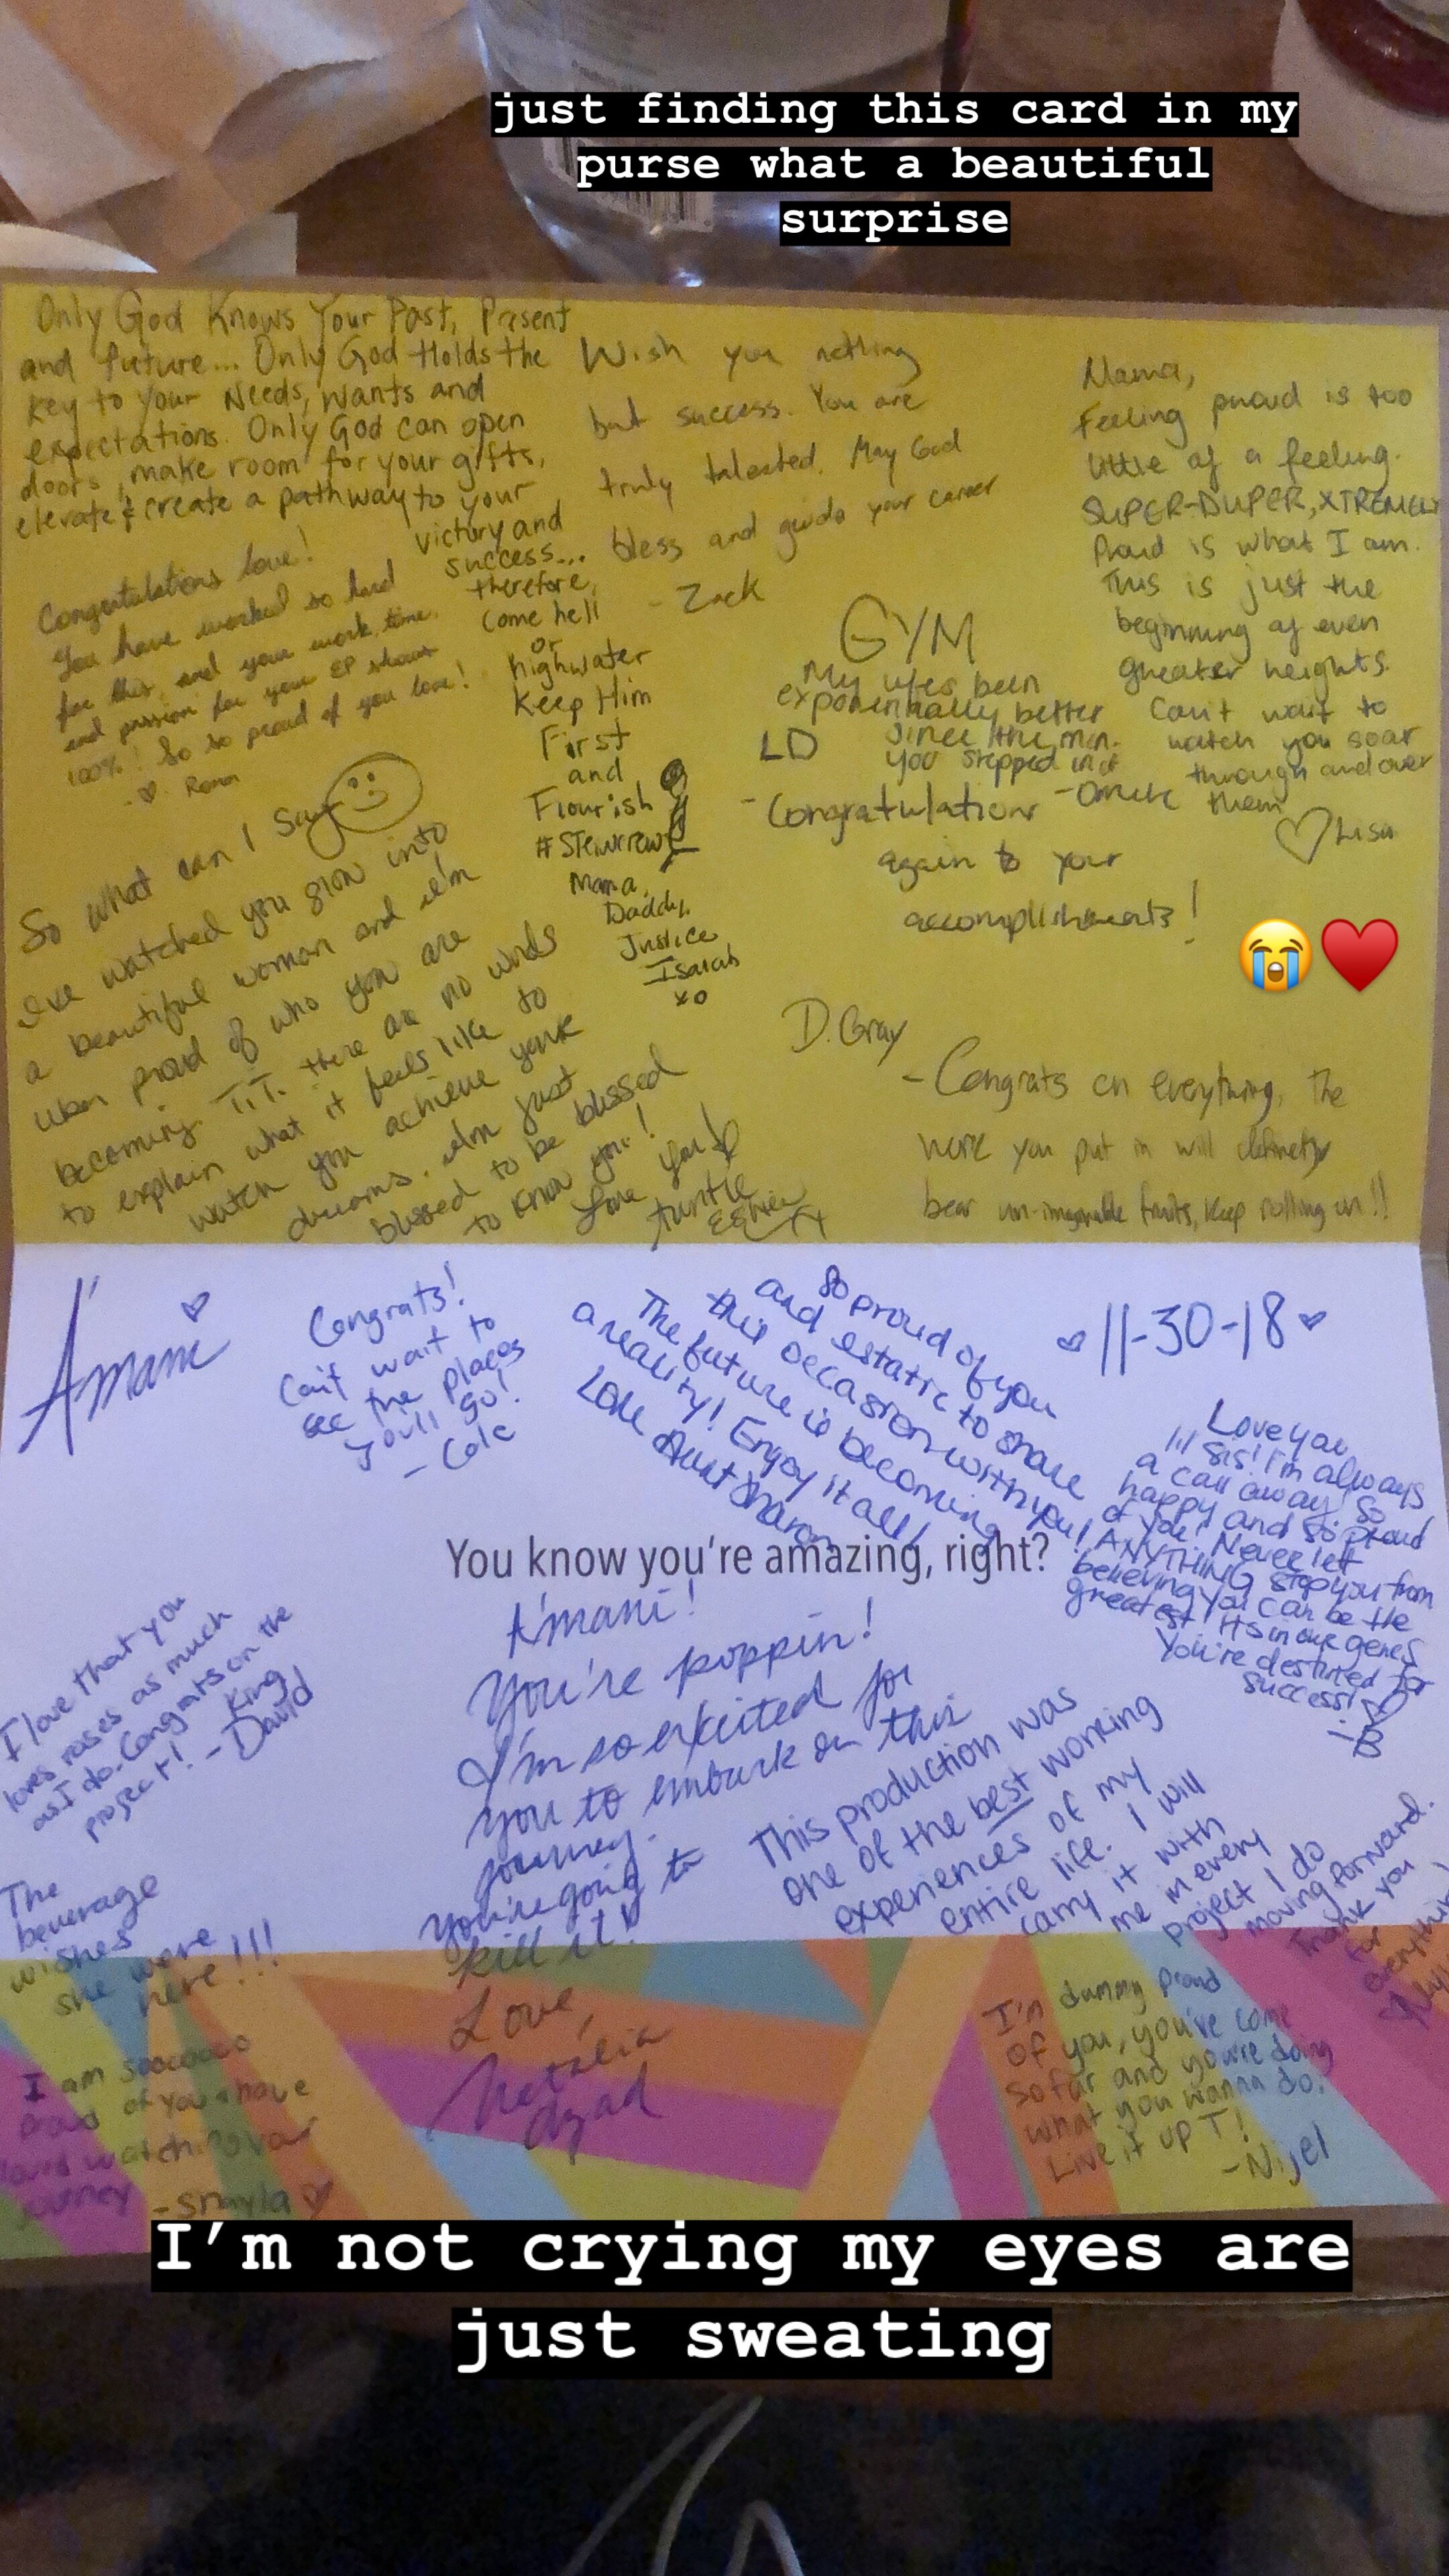 just finding this card in my
purse what a beautiful
surprise
Only God Knows Your Past, Present
and future... Only God Holds the
Key to your Needs, Wants and
expectations. Only God can open
doors, make room for your gifts,
elevate & create a pathway to your
victory and
success...
therefore,
Come hell
or
highwater
Keep Him
First
and
Flourish
Mama,
Daddy,
Justice
Isaiah
xo
Wish you nothing
but success. You are
truly talented. May God
bless and guide your career
- Zack
Mama,
Feeling proud is too
little of a feeling.
SUPER-DUPER, XTREMELY
Proud is what I am.
This is just the
beginning of even
greater heights.
Can't wait to
watch you soar
through and over
them
Lisa
Congratulations love!
You have worked so hard
for this, and your work, time,
and passion for your EP shows
100%! So so proud of you love!
GYM
My life's been
exponentially better
since the min.
you stepped in it
LD
- Congratulations
again to your
accomplishments!
😭♥️
So what can I say
I've watched you grow into
a beautiful woman and I'm
proud of who you are
becoming. T.T. there are no words
to explain what it feels like to
watch you achieve your
dreams. I'm just
blessed to be blessed
to know you!
Love you!
D. Gray
- Congrats on everything, the
work you put in will definetly
bear un-imaginable fruits, keep rolling on!!
A'mani
Congrats!
Can't wait to
see the places
you'll go!
- Cole
So proud of you
and estatic to share
this occasion with you!
The future is becoming
a reality! Enjoy it all!
Love Aunt Sharon
11-30-18
Love you
lil sis! I'm always
a call away! So
happy and so proud
of you! Never let
ANYTHING stop you from
believing you can be the
greatest! It's in our genes
You're destined for
success!
- B
You know you're amazing, right?
A'mani!
You're poppin!
I'm so excited for
you to embark on this
journey.
You're going to
kill it!
Love,
Natalia
I love that you
loves roses as much
as I do. Congrats on the
project! - King
David
This production was
one of the best working
experiences of my
entire life. I will
carry it with
me in every
project I do
moving forward.
Thank you
for
everything
The
beverage
wishes
she were
here!!!
I am sooooooo
proud of you & have
loved watching your
journey - Shayla
I'm dummy proud
of you, you've come
so far and you're doing
what you wanna do.
Live it up T!
- Nijel
I'm not crying my eyes are
just sweating